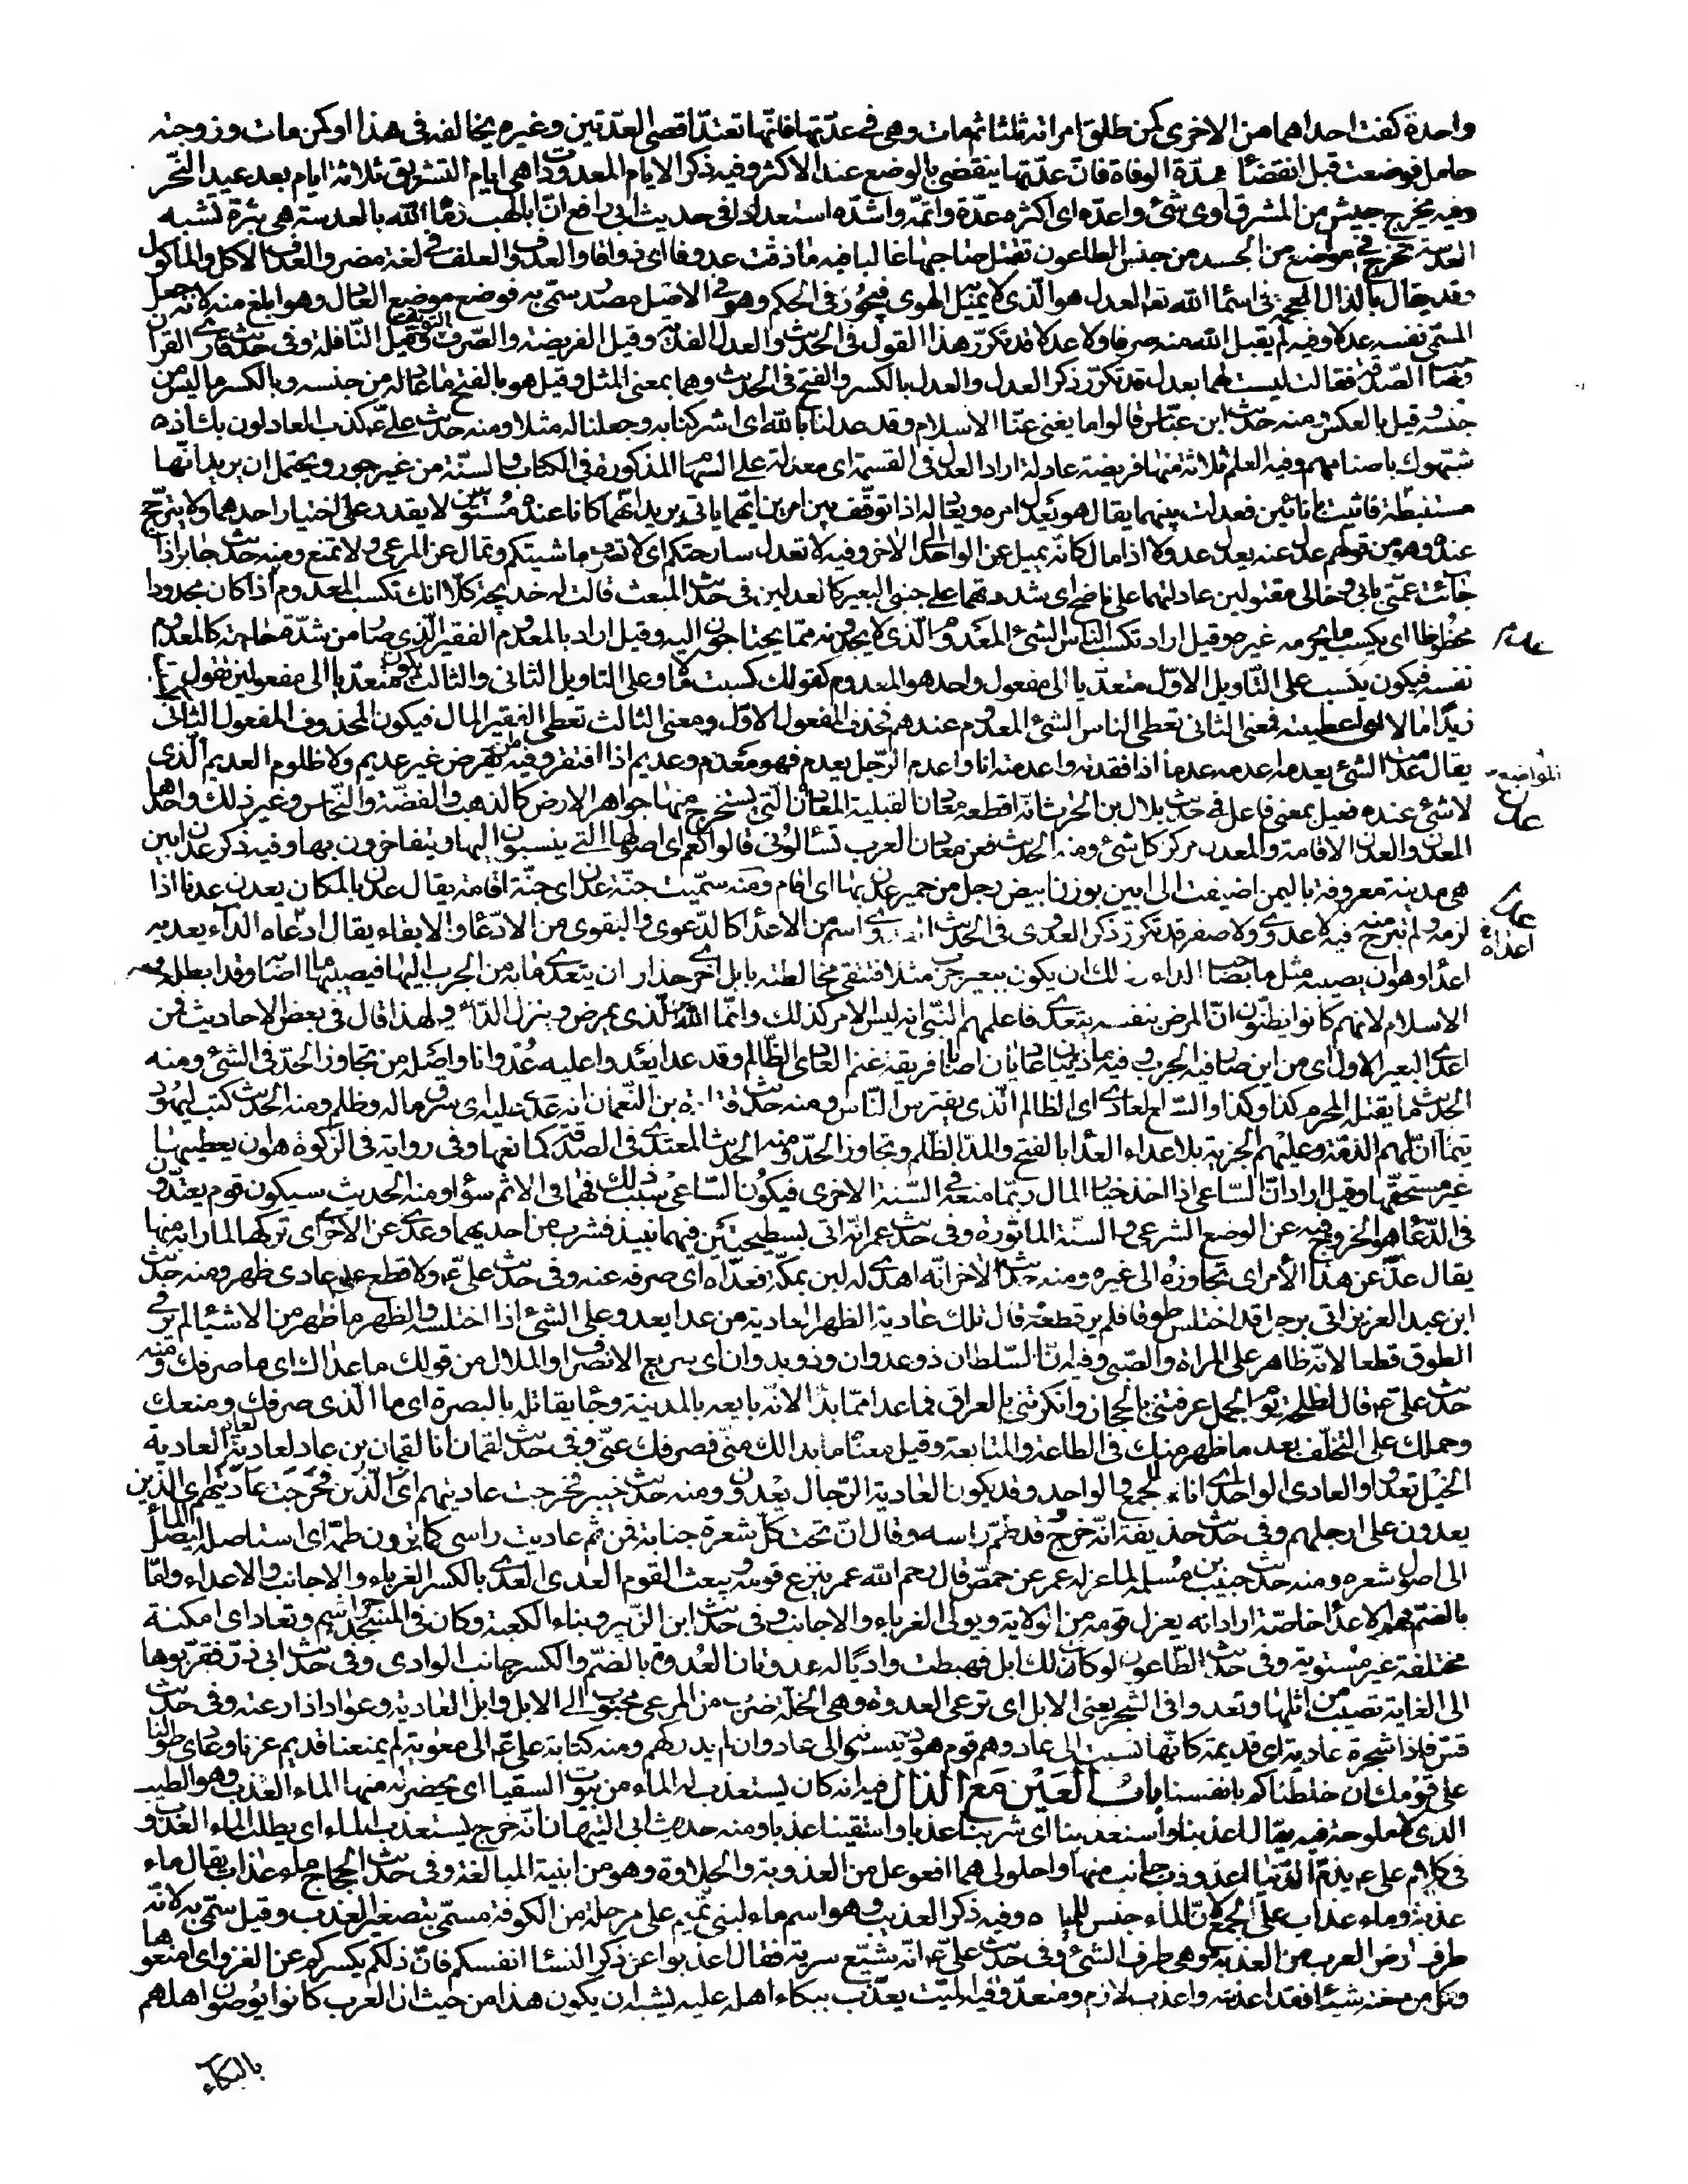 واحدة كفت احداهما من الاخرى كمن طلق امراته ثلثا ثم مات وهى فى عدتها فانها تعتد اقصى العدتين وغيره يخالفه فى هذا او كمن مات وزوجته
حامل فوضعت قبل انقضاء مدة الوفاة فان عدتها ينقضى بالوضع عند الاكثر وفيه ذكر الايام المعدودات هى ايام التشريق ثلاثة ايام بعد عيد النحر
وفيه يخرج جيش من المشرق اوى شئ واعده اى اكثره عدة واتمه واشده استعدادا فى حديث ابى رافع ان ابا لهب رماه الله بالعدسة هى بثرة تشبه
العدسة تخرج فى موضع من الجسد من جنس الطاعون تقتل صاحبها غالبا فيه ما ذقت عدوفا اى ذواقا والعدف والعلف فى لغة مضر والعدف الاكل والماكول
وقد يقال بالذال المعجمة فى اسماء الله تعا العدل هو الذى لا يميل به الهوى فيجور فى الحكم وهو فى الاصل مصدر سمى به فوضع موضع العادل وهو ابلغ منه لانه جعل
المسمى نفسه عدلا وفيه لم يقبل الله منه صرفا ولا عدلا قد تكرر هذا القول فى الحديث والعدل الفدية وقيل الفريضة والصرف التوبة وقيل النافلة وفى حديث قارى القران
وصاحب الصدقة فقالت ليست لهما بعدل قد تكرر ذكر العدل والعدل بالكسر والفتح فى الحديث وهما بمعنى المثل وقيل هو بالفتح ما عادله من جنسه وبالكسر ما ليس من
جنسه وقيل بالعكس ومنه حديث ابن عباس قالوا ما يغنى عنا الاسلام وقد عدلنا بالله اى اشركنا به وجعلنا له مثلا ومنه حديث على ع كذب العادلون بك اذ
شبهوك باصنامهم وفيه العلم ثلاثة منها فريضة عادلة اراد العدل فى القسمة اى معدلة على السهام المذكورة فى الكتاب والسنة من غير جور ويحتمل ان يريد انها
مستنبطة فاتيت باناءين فعدلت بينهما يقال هو يعدل امره ويعادله اذا توقف بين امرين ايهما ياتى يريد انهما كانا عنده مستويين لا يقدر على اختيار احدهما ولا يترجح
عنده وهو من قولهم عدل عنه يعدل عدولا اذا مال كانه يميل عن الواحد الى الاخر وفيه لا تعدل سارحتكم اى لا تصرف ماشيتكم وتمال عن المرعى ولا تمنع ومنه حديث جابر اذا
جاءت عمتى بابى وخالى مقتولين عادلتهما على ناضح اى شددتهما على جنبى البعير كالعدلين فى حديث المبعث قالت له خديجة كلا انك تكسب المعدوم اذا كان مجدودا
محظوظا اى يكسب ما يحرمه غيره وقيل اراد تكسب الناس الشئ المعدوم الذى لا يجدونه مما يحتاجون اليه وقيل اراد بالمعدوم الفقير الذى صار من شدة حاجته كالمعدوم
نفسه فيكون يكسب على التاويل الاول متعديا الى مفعول واحد هو المعدوم كقولك كسبت مالا وعلى التاويل الثانى والثالث يكون متعديا الى مفعولين تقول كسبت
زيدا مالا اى اعطيته فمعنى الثانى تعطى الناس الشئ المعدوم عندهم فحذف المفعول الاول ومعنى الثالث تعطى الفقير المال فيكون المحذوف المفعول الثانى
يقال عدمت الشئ يعدمه اعدمه عدما اذا فقدته واعدمته انا واعدم الرجل يعدم فهو معدم وعديم اذا افتقر وفيه من يقرض غير عديم ولا ظلوم العديم الذى
لا شئ عنده فعيل بمعنى فاعل فى حديث بلال بن الحارث انه اقطعه معادن القبلية المعادن التى يستخرج منها جواهر الارض كالذهب والفضة والنحاس وغير ذلك واحدها
المعدن والعدن الاقامة والمعدن مركز كل شئ ومنه الحديث فعن معادن العرب تسألونى قالوا نعم اى اصولها التى ينسبون اليها ويتفاخرون بها وفيه ذكر عدن ابين
هى مدينة معروفة باليمن اضيفت الى ابين بوزن ابيض رجل من حمير عدن بها اى اقام ومنه سميت جنة عدن اى جنة اقامة يقال عدن بالمكان يعدن عدنا اذا
لزمه ولم يبرح منه فيه لا عدوى ولا صفر قد تكرر ذكر العدوى فى الحديث العدوى اسم من الاعداء كالدعوى والبقوى من الادعاء والابقاء يقال اعداه الداء يعديه
اعداء وهو ان يصيبه مثل ما بصاحب الداء وذلك ان يكون ببعير جرب مثلا فتتقى مخالطته بابل اخرى حذار ان يتعدى ما به من الجرب اليها فيصيبها ما اصابه وقد ابطله
الاسلام لانهم كانوا يظنون ان المرض بنفسه يتعدى فاعلمهم النبى انه ليس الامر كذلك وانما الله الذى يمرض وينزل الداء ولهذا قال فى بعض الاحاديث فمن
اعدى البعير الاول اى من اين صار فيه الجرب وفيه ما ذئبان عاديان اصابا فريقة غنم العادى الظالم وقد عدا يعدو عليه عدوانا واصله من تجاوز الحد فى الشئ ومنه
الحديث ما يقتله المحرم كذا وكذا والسبع العادى اى الظالم الذى يفترس الناس ومنه حديث قتادة بن النعمان انه عدى عليه اى سرق ماله وظلم ومنه الحديث كتب ليهود
تيماء ان لهم الذمة وعليهم الجزية بلا عداء العداء بالفتح والمد الظلم وتجاوز الحد ومنه الحديث المعتدى فى الصدقة كمانعها وفى رواية فى الزكوة هو ان يعطيها
غير مستحقها وقيل اراد ان الساعى اذا اخذ خيار المال ربما منعه فى السنة الاخرى فيكون الساعى سبب ذلك فهما فى الاثم سواء ومنه الحديث سيكون قوم يعتدون
فى الدعاء هو الخروج فيه عن الوضع الشرعى والسنة الماثورة وفى حديث عمر انه اتى بسطيحتين فيهما نبيذ فشرب من احديهما وعدى عن الاخرى اى تركها لما رابه منها
يقال عد عن هذا الأمر اى تجاوزه الى غيره ومنه حديثه الاخر انه اهدى له لبن بمكة فعداه اى صرفه عنه وفى حديث على ع ولا قطع على عادى ظهر ومنه حديث
ابن عبد العزيز اتى برجل قد اختلس طوقا فلم ير قطعه قال تلك عادية الظهر العادية من عدا يعدو على الشئ اذا اختلسه والظهر ما ظهر من الاشياء لم ير فى
الطوق قطعا لانه ظاهر على المراة والصبى وفيه ان السلطان ذو عدوان وذو بدوان اى سريع الانصراف والملال من قولك ما عداك اى ما صرفك ومنه
حديث على ع قال لطلحة يوم الجمل عرفتنى بالحجاز وانكرتنى بالعراق فما عدا مما بدا لانه بايعه بالمدينة وجاء يقاتله بالبصرة اى ما الذى صرفك ومنعك
وحملك على التخلف بعد ما ظهر منك فى الطاعة والمتابعة وقيل معناه ما بدا لك منى فصرفك عنى وفى حديث لقمان انا لقمان بن عاد لعادية لعاد العادية
الخيل تعدو والعادى الواحد اى انا للجمع والواحد وقد يكون العادية الرجال يعدون ومنه حديث خيبر فخرجت عاديتهم اى الذين
يعدون على ارجلهم وفى حديث حذيفة انه خرج وقد طم راسه وقال ان تحت كل شعرة جنابة فمن ثم عاديت راسى كما ترون طمه اى استاصله ليصل الماء
الى اصول شعره ومنه حديث حبيب بن مسلمة لما عزله عمر عن حمص قال رحم الله عمر ينزع قومه ويبعث القوم العدى العدى بالكسر الغرباء والاجانب والاعداء واما
بالضم فهم الاعداء خاصة اراد انه يعزل قومه من الولاية ويولى الغرباء والاجانب وفى حديث ابن الزبير وبناء الكعبة وكان فى المسجد جراثيم وتعاد اى امكنة
مختلفة غير مستوية وفى حديث الطاعون لو كان لك ابل فهبطت واديا له عدوتان العدوة بالضم والكسر جانب الوادى وفى حديث ابى ذر فقربوها
الى الغابة تصيب من اثلها وتعدو فى الشجر يعنى الابل اى ترعى العدوة وهى الخلة ضرب من المرعى محبوب الى الابل وابل العادية وعواد اذا رعته وفى حديث
قس فاذا شجرة عادية اى قديمة كانها نسبت الى عاد وهم قوم هود ينسبون الى عاد وان لم يدركهم ومنه كتابة على ع الى معوية لم يمنعنا قديم عزنا وعادى طولنا
على قومك ان خلطناكم بانفسنا باب العين مع الذال فيه انه كان يستعذب له الماء من بيوت السقيا اى يحضر له منها الماء العذب وهو الطيب
الذى لا ملوحة فيه يقال اعذبنا واستعذبنا اى شربنا عذبا واستقينا عذبا ومنه حديث ابى التيهان انه خرج يستعذب الماء اى يطلب الماء العذب و
فى كلام على ع يذم الدنيا اعذوذب جانب منها واحلولى هما افعوعل من العذوبة والحلاوة وهو من ابنية المبالغة وفى حديث الحجاج ماء عذاب يقال ماء
عذبة وماء عذاب على الجمع لان الماء جنس للماءة وفيه ذكر العذيب وهو اسم ماء لبنى تميم على مرحلة من الكوفة مسمى بتصغير العذب وقيل سمى به لانه
طرف ارض العرب من العذبة وهى طرف الشئ وفى حديث على ع انه شيع سرية فقال اعذبوا عن ذكر النساء انفسكم فان ذلكم يكسركم عن الغزو اى امنعوها
وكل من منعته شيئا فقد اعذبته واعذب لازم ومتعد وفيه الميت يعذب ببكاء اهله عليه يشبه ان يكون هذا من حيث ان العرب كانوا يوصون اهلهم
بالبكاء
عدم
المواضع
عدن
عدا
اعداه